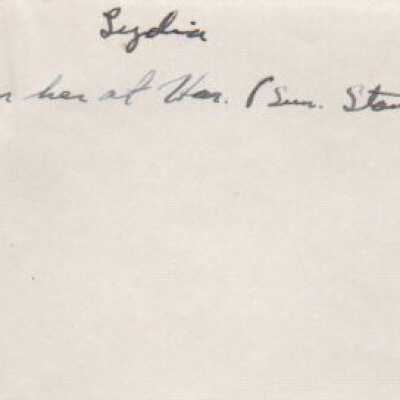 Lydia
her at Har. (Sun. Sta